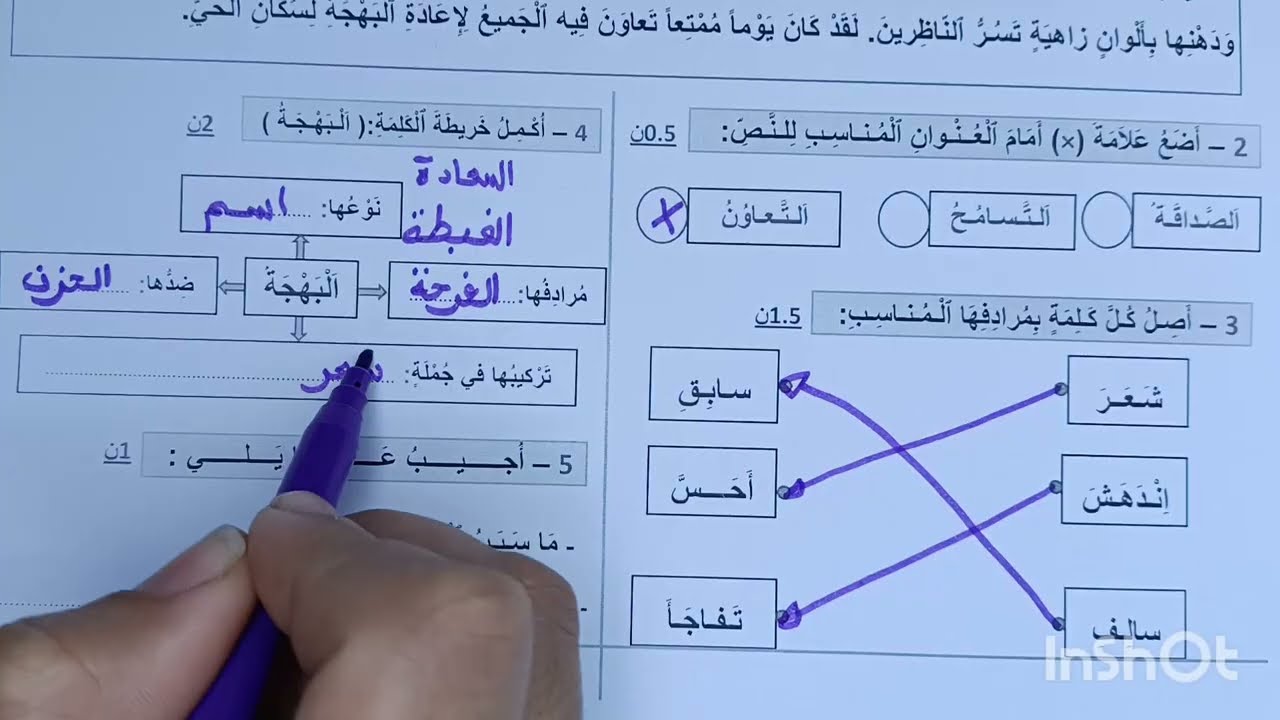 وَدَهْنِها بِأَلْوانٍ زاهِيَةٍ تَسُرُّ ٱلنَّاظِرينَ. لَقَدْ كَانَ يَوْماً مُمْتِعاً تَعاوَنَ فِيهِ ٱلْجَميعُ لِإِعَادَةِ ٱلْبَهْجَةِ لِسُكَّانِ ٱلْحَيِّ.
2 – أَضَعُ عَلاَمَةَ (×) أَمَامَ ٱلْعُنْوانِ ٱلْمُناسِبِ لِلنَّصِّ: 0.5ن
اَلصَّداقَةُ
اَلتَّسامُحُ
اَلتَّعاوُنُ X
3 – أَصِلُ كُلَّ كَلِمَةٍ بِمُرادِفِهَا ٱلْمُناسِبِ: 1.5ن
شَعَرَ سابِقِ
اِنْدَهَشَ أَحَسَّ
سالِفِ تَفاجَأَ
4 – أُكْمِلُ خَريطَةَ ٱلْكَلِمَةِ:( اَلْبَهْجَةُ ) 2ن
السعادة
نَوْعُها: اسم
الغبطة
مُرادِفُها: الفرحة
اَلْبَهْجَةُ
ضِدُّها: الحزن
تَرْكيبُها في جُمْلَةٍ:
5 – أُجيبُ يَلي : 1ن
- مَا سَبَبُ
-
InShOt